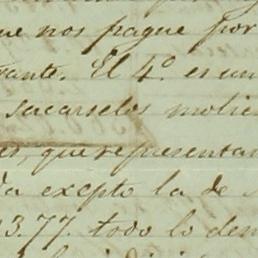 que nos pague por
ante. El 4º. es un
sacarselos molie
es, que representan
da excpto la de
3.77. todo lo dem